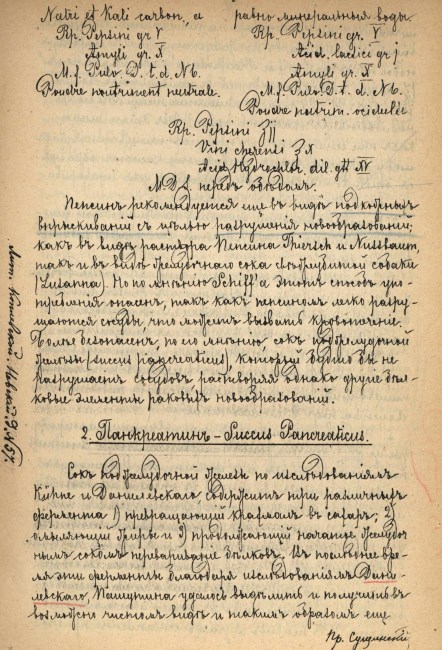 Natri et Kali carbon, а равно минеральныя воды.
Rp. Pepsini gr V
Amyli gr. X
M. f. Pulv. D. t. d. N6.
Poudre nutriment neutrale.
Rp. Pepsini gr. V.
Acid. lactici gr j
Amyli gr. X
M. f. Pulv. D. t. d. N6.
Poudre nutrim.
Rp. Pepsini ℥ij
Vini cherensi ℥x
Acid. Hydrochlor. dil. gtt XV
M. D. S. передъ обѣдомъ.
Пепсинъ рекомендуется еще въ видѣ подкожныхъ
впрыскиваній съ цѣлью разрушенія новообразованій;
какъ въ видѣ раствора Пепсина Thiersch и Nussbaum,
такъ и въ видѣ желудочнаго сока собаки
(Lusanna). Но по мнѣнію Schiff'а этотъ способъ упо-
требленія опасенъ, такъ какъ пепсиномъ легко разру-
шаются сосуды, что можетъ вызвать кровотеченіе.
Болѣе безопасенъ, по его мнѣнію, сокъ поджелудочной
железы (succus pancreaticus), который будто бы не
разрушаетъ сосудовъ, растворяя однако другіе бѣл-
ковые элементы раковыхъ новообразованій.
2. Панкреатинъ – Succus Pancreaticus.
Сокъ поджелудочной железы по изслѣдованіямъ
Кюне и Данилевскаго содержитъ три различныхъ
фермента 1) превращающій крахмалъ въ сахаръ; 2)
жиры и 3) продолжающій начатое желудоч-
нымъ сокомъ перевариваніе бѣлковъ. Въ послѣднее вре-
мя эти ферменты благодаря изслѣдованіямъ Дани-
левскаго, Пашутина удалось выдѣлить и получить въ
возможно чистомъ видѣ и такимъ образомъ еще
Пр. Сущинскій
Лит.